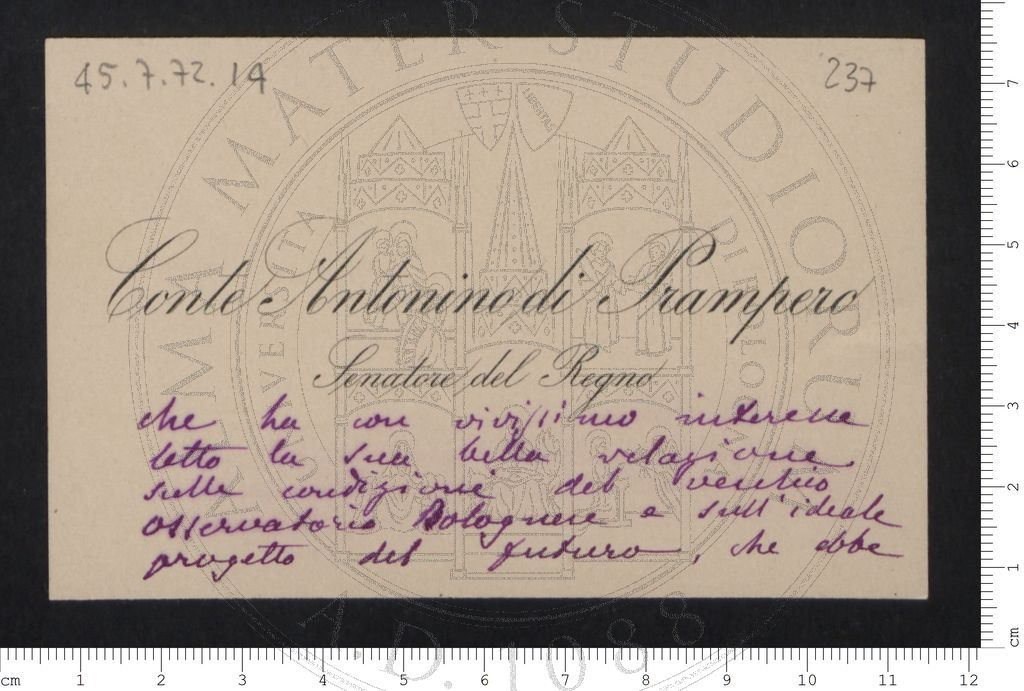 45.7.72.14
237
Conte Antonino di Prampero
Senatore del Regno
che ha con vivissimo interesse
letto la sua bella relazione
sulle condizioni del vecchio
Osservatorio Bolognese e sull'ideale
progetto del futuro, che ebbe
ALMA MATER STUDIORUM
A.D. 1088
cm 1 2 3 4 5 6 7 8 9 10 11 12
7
6
5
4
3
2
1
cm